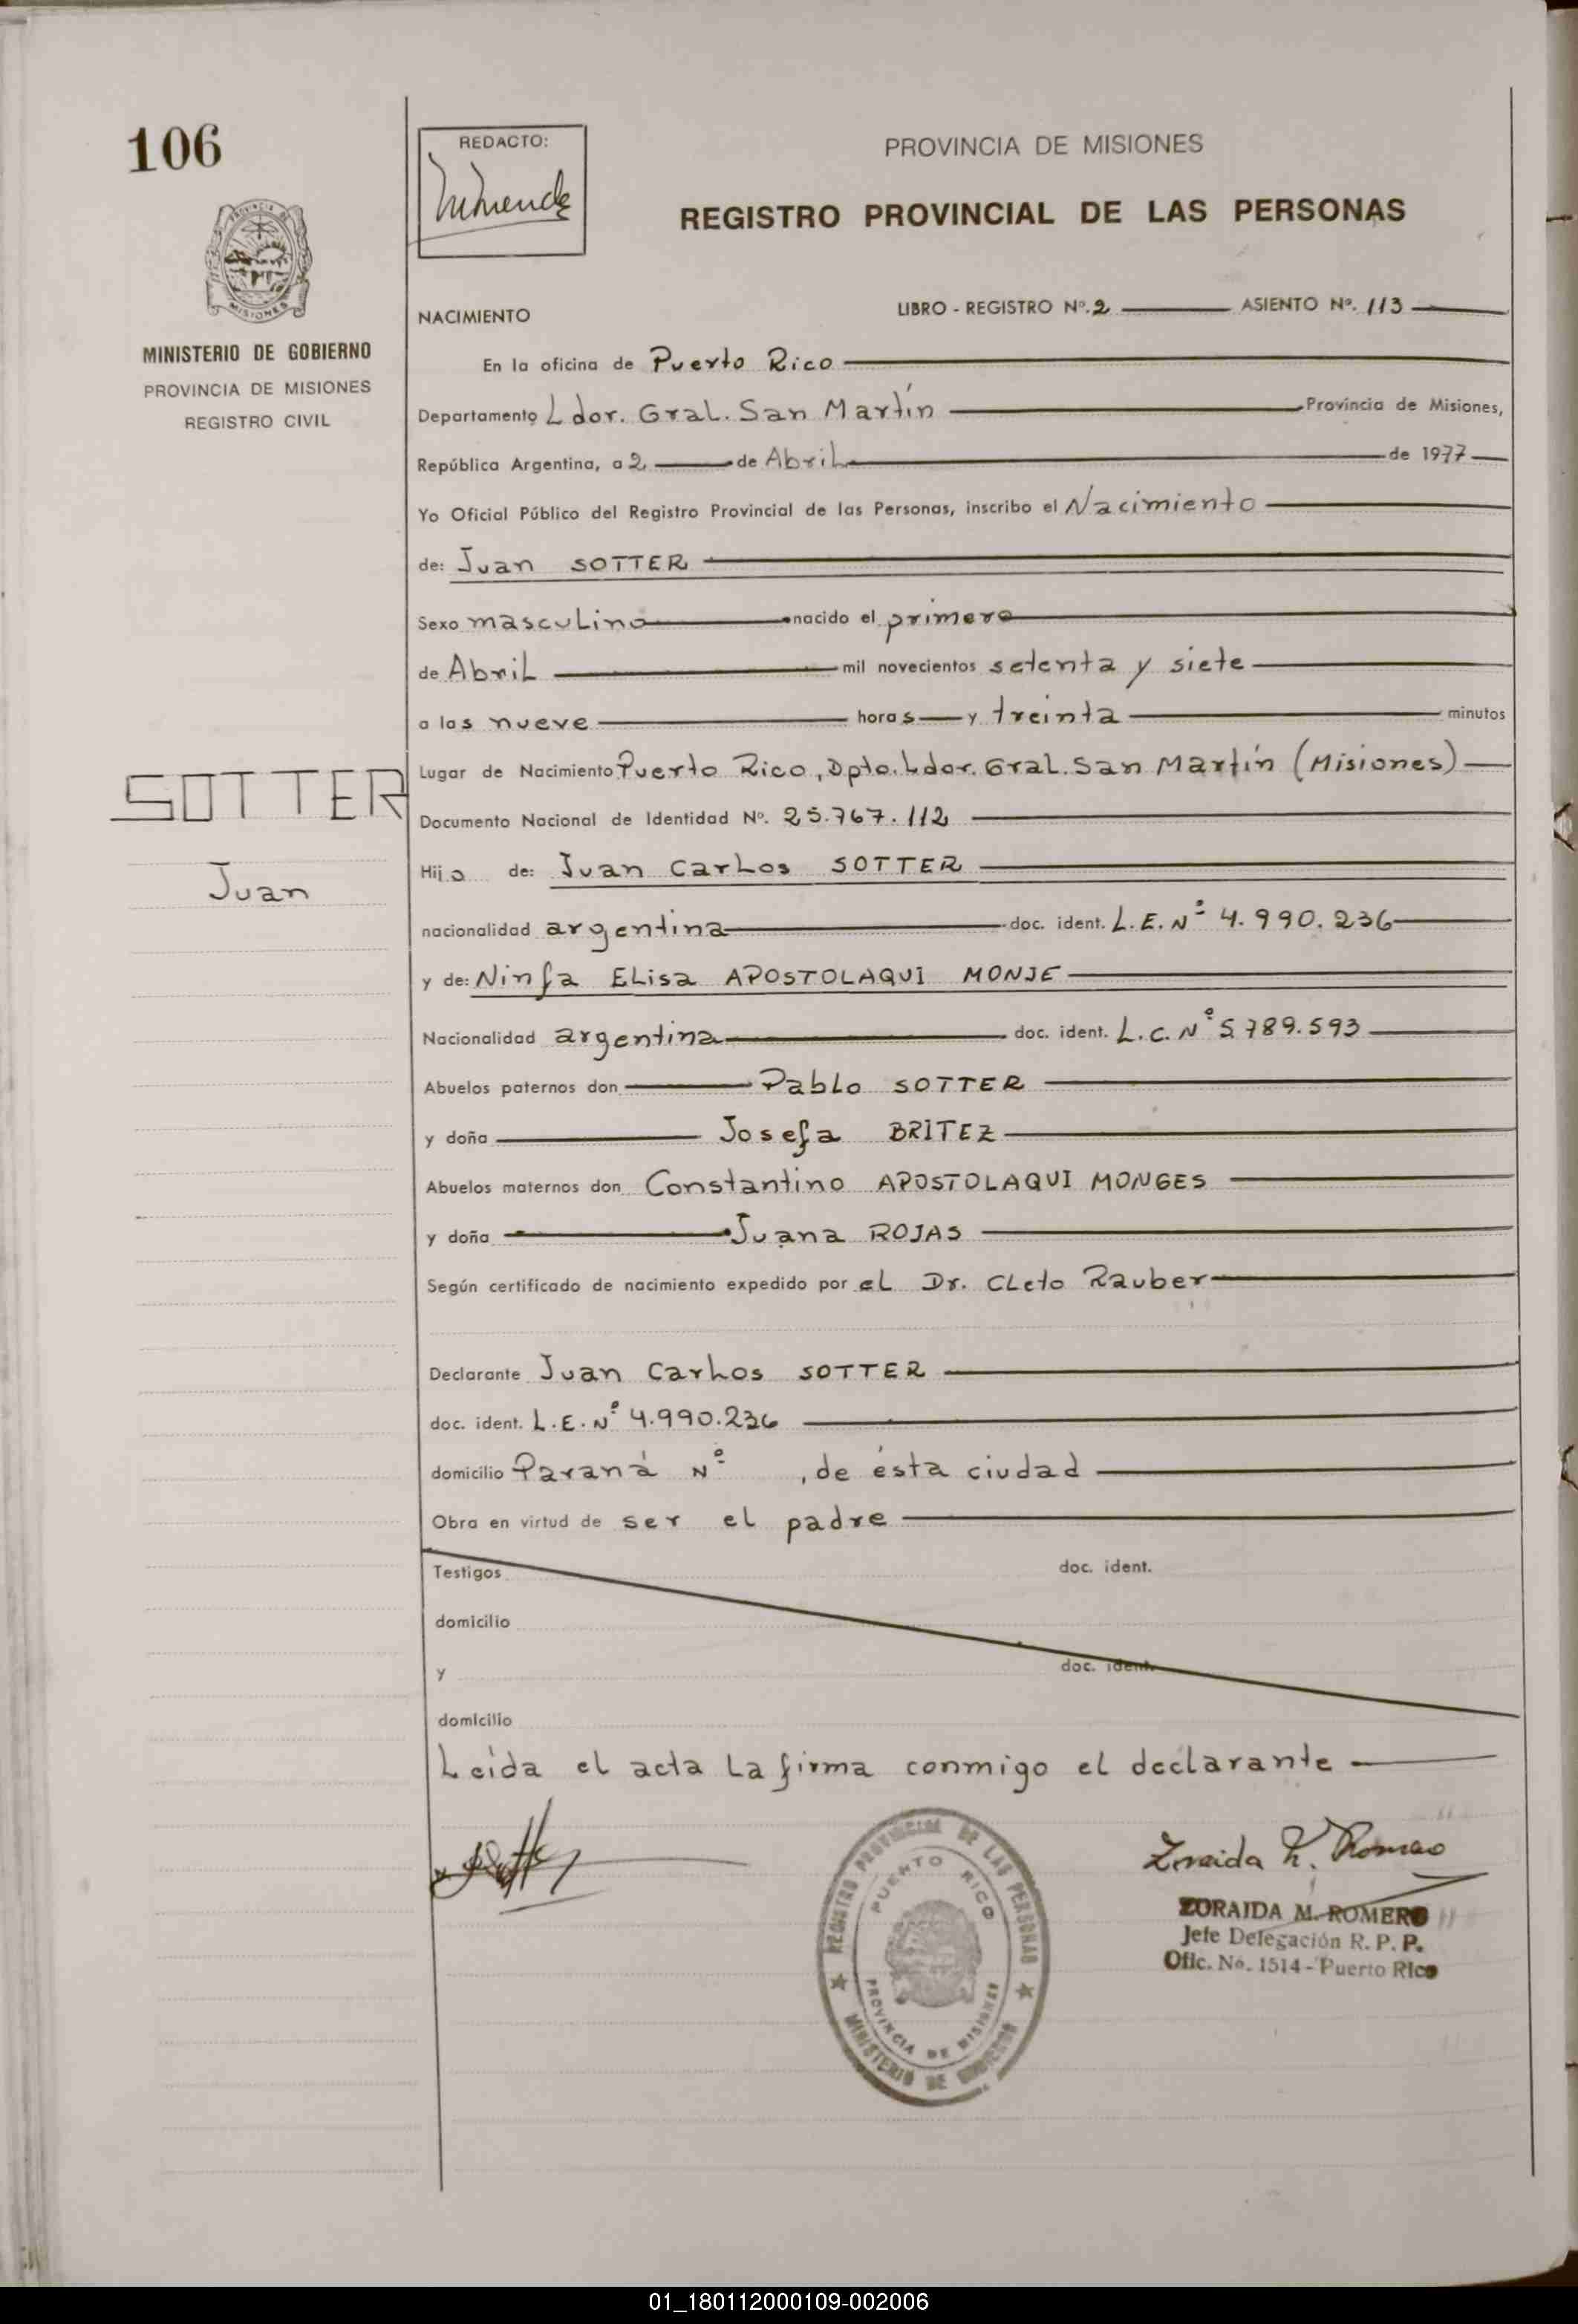 106
PROVINCIA DE MISIONES
MINISTERIO DE GOBIERNO
PROVINCIA DE MISIONES
REGISTRO CIVIL
SOTTER
Juan
REDACTO:
PROVINCIA DE MISIONES
REGISTRO PROVINCIAL DE LAS PERSONAS
NACIMIENTO
LIBRO - REGISTRO Nº. 2 ASIENTO Nº. 113
En la oficina de Puerto Rico
Departamento Ldor. Gral. San Martín Provincia de Misiones,
República Argentina, a 2 de Abril de 1977
Yo Oficial Público del Registro Provincial de las Personas, inscribo el Nacimiento
de: Juan SOTTER
Sexo masculino nacido el primero
de Abril mil novecientos setenta y siete
a las nueve horas y treinta minutos
Lugar de Nacimiento Puerto Rico, Dpto. Ldor. Gral. San Martín (Misiones)
Documento Nacional de Identidad Nº. 25.767.112
Hijo de: Juan Carlos SOTTER
nacionalidad argentina doc. ident. L.E. Nº 4.990.236
y de: Ninfa Elisa APOSTOLAQUI MONJE
Nacionalidad argentina doc. ident. L.C. Nº 5.789.593
Abuelos paternos don Pablo SOTTER
y doña Josefa BRITEZ
Abuelos maternos don Constantino APOSTOLAQUI MONGES
y doña Juana ROJAS
Según certificado de nacimiento expedido por el Dr. Cleto Rauber
Declarante Juan Carlos SOTTER
doc. ident. L.E. Nº 4.990.236
domicilio Paraná Nº , de ésta ciudad
Obra en virtud de ser el padre
Testigos doc. ident.
domicilio
y doc. ident.
domicilio
Leída el acta la firma conmigo el declarante
REGISTRO PROVINCIAL DE LAS PERSONAS
PUERTO RICO
PROVINCIA DE MISIONES
MINISTERIO DE GOBIERNO
Zoraida M. Romero
ZORAIDA M. ROMERO
Jefe Delegación R. P. P.
Ofic. No. 1514 - Puerto Rico
01_180112000109-002006